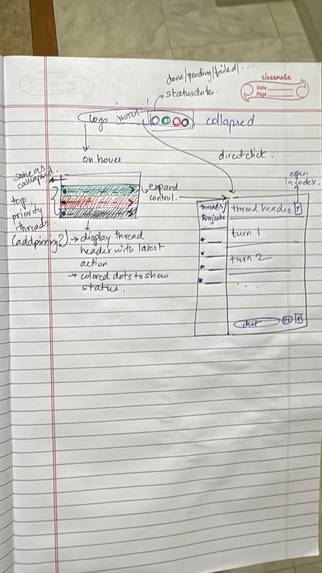 classmate
Date
Page
done/pending/failed/...
status dots.
Logo
collapsed
on hover
direct click.
same as
collapsed
expand
control.
top
priority
threads
→ display thread
header with latest
action
→ colored dots to show
status.
open
in
threads/
Projects
thread header
turn 1
turn 2
...
chat